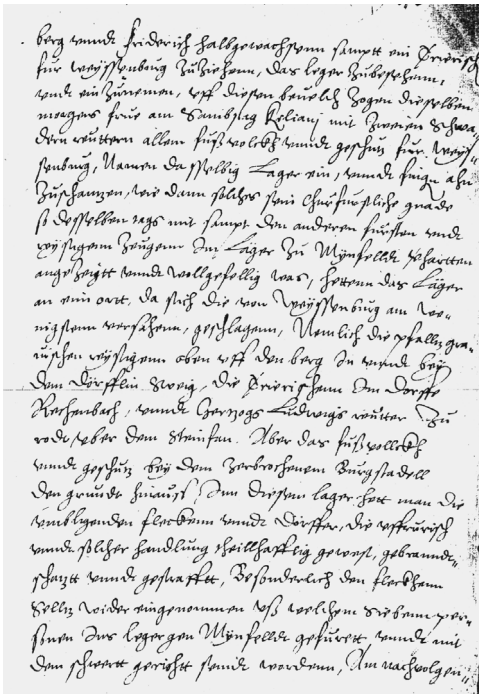 berg vnndt Friderich Hallgewachsenn samptt ein Trierisch
fur Weyssenburg Zuziehenn, das leger Zubesehenn,
vndt ein Zunemen, vff diesen beuelch Zogen dieselben
morgens frue am Sambstag Keliani mit Zweien Schwa-
dern reuttern allem fuß volckh vnndt geschutz fur Weys-
senburg, Namen dasselbig Lager ein, vnndt fingn ahn
Zuschantzen, wie dann solches sein Churfurstliche gnade
so desselben tags mit sampt den anderen fursten vndt
reysigem Zeugenn Im Lager Zu Mynfelldt
angezeigtt vnndt wollgefellig was, hettenn das Lager
an einn ortt, da sich die von Weyssenburg am we-
nigstenn versahenn, geschlagenn, Nemlich die pfaltzgra-
uischen reysigenn oben vff den berg In vnndt bey
dem dörfflin Sweig, die Trierischenn Im dorffe
Rechenbach, vnndt Hertzogs Ludwigs reutter Zu
rodt, vber dem Steinfan. Aber das fuß vollckh
vnndt geschutz bey dem Zerbrochenem Burgstadell
den grundt hinauss, Inn diesem lager hett man die
vmbligenden fleckenn vnndt dörffer, die vffrurisch
vnndt solcher handlung theillhafftig gewest, gebrandt-
schatzt vnndt gestrafftt, Besonderlich den fleckhenn
Selltz wider eingenommen vß welchem siebenn per-
sonen Ins leger gen Mynfelldt gefurett vnndt mit
dem schwert gerichtt seindt wordenn, Am nachvolgen-